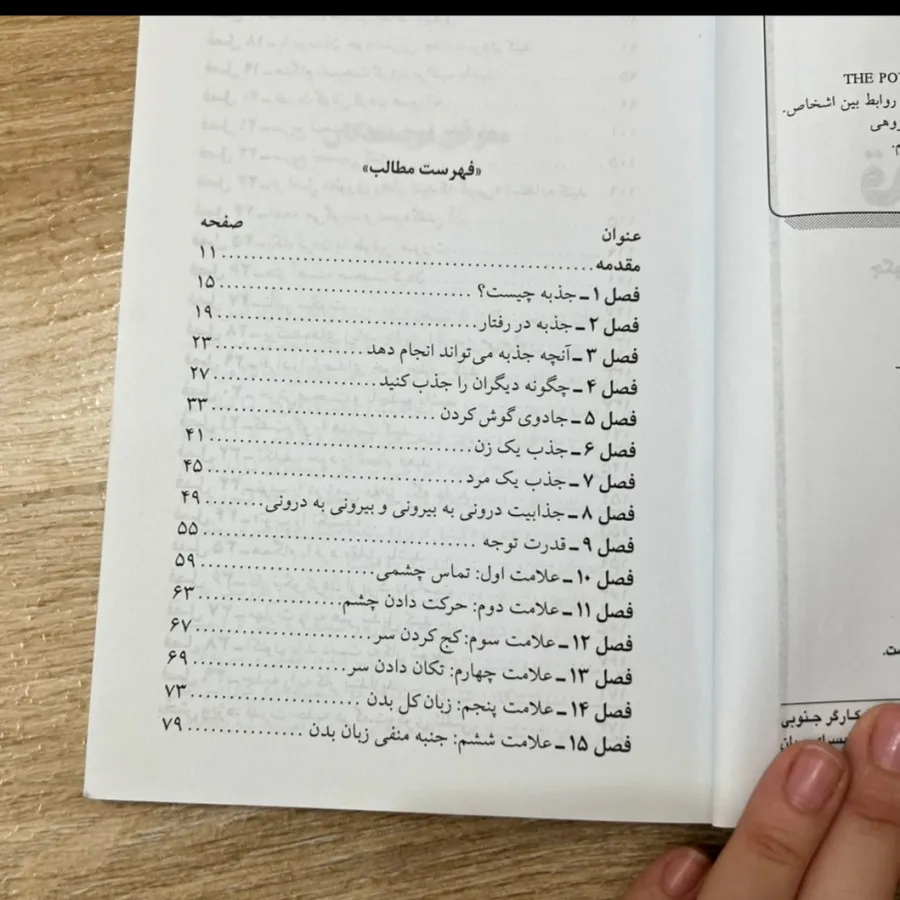 «فهرست مطالب»
عنوان صفحه
مقدمه ۱۱
فصل ۱ ـ جذبه چیست؟ ۱۵
فصل ۲ ـ جذبه در رفتار ۱۹
فصل ۳ ـ آنچه جذبه می‌تواند انجام دهد ۲۳
فصل ۴ ـ چگونه دیگران را جذب کنید ۲۷
فصل ۵ ـ جادوی گوش کردن ۳۳
فصل ۶ ـ جذب یک زن ۴۱
فصل ۷ ـ جذب یک مرد ۴۵
فصل ۸ ـ جذابیت درونی به بیرونی و بیرونی به درونی ۴۹
فصل ۹ ـ قدرت توجه ۵۵
فصل ۱۰ ـ علامت اول: تماس چشمی ۵۹
فصل ۱۱ ـ علامت دوم: حرکت دادن چشم ۶۳
فصل ۱۲ ـ علامت سوم: کج کردن سر ۶۷
فصل ۱۳ ـ علامت چهارم: تکان دادن سر ۶۹
فصل ۱۴ ـ علامت پنجم: زبان کل بدن ۷۳
فصل ۱۵ ـ علامت ششم: جنبه منفی زبان بدن ۷۹
THE
روابط بین اشخاص.
کارگر جنوبی